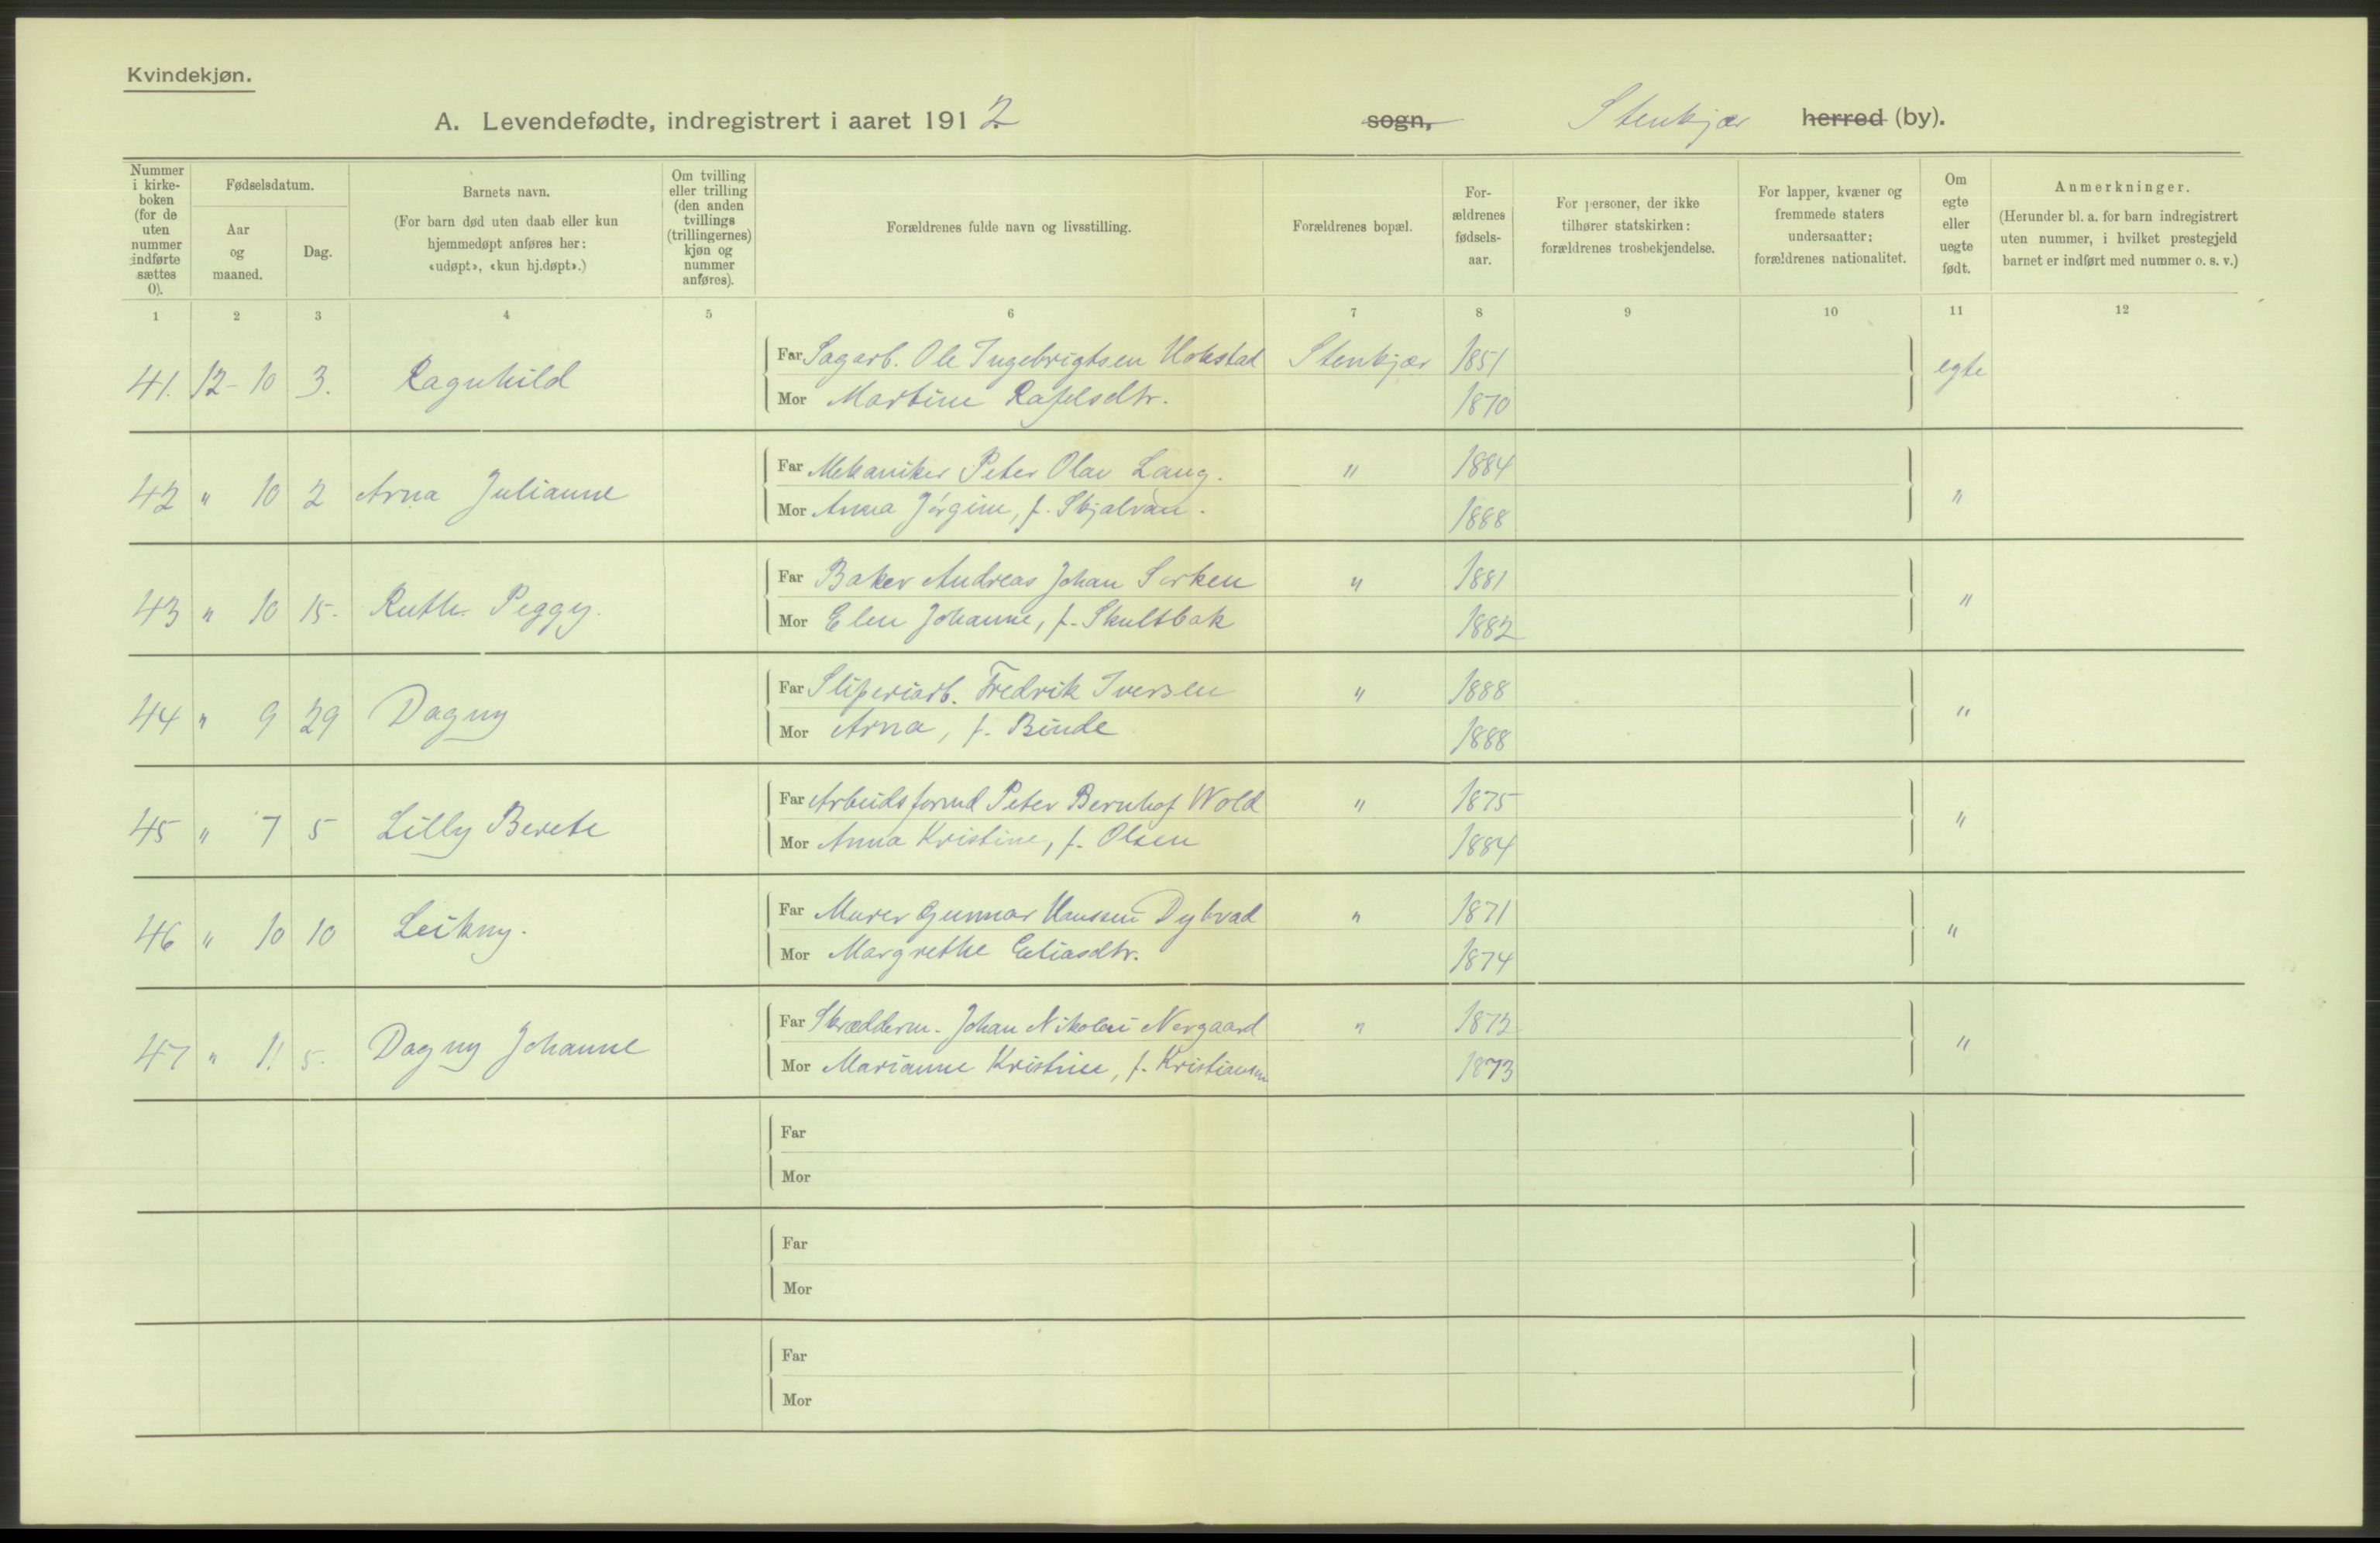 Kvindekjøn.
A. Levendefødte, indregistrert i aaret 1912. sogn, Stenkjær herred (by).
Nummer i kirke-boken (for de uten nummer indførte sættes 0).
Fødselsdatum.
Aar og maaned.
Dag.
Barnets navn.
(For barn død uten daab eller kun hjemmedøpt anføres her: «udøpt», «kun hj.døpt».)
Om tvilling eller trilling (den anden tvillings (trillingernes) kjøn og nummer anføres).
Forældrenes fulde navn og livsstilling.
Forældrenes bopæl.
For-ældrenes fødsels-aar.
For personer, der ikke tilhører statskirken: forældrenes trosbekjendelse.
For lapper, kvæner og fremmede staters undersaatter; forældrenes nationalitet.
Om egte eller uegte født.
Anmerkninger.
(Herunder bl. a. for barn indregistrert uten nummer, i hvilket prestegjeld barnet er indført med nummer o. s. v.)
1 2 3 4 5 6 7 8 9 10 11 12
41. 12-10 3. Ragnhild Far Sagarb. Ole Ingebrigtsen Hokstad Stenkjær 1851 egte
Mor Martine Rafelsdtr. 1870
42 " 10 2 Arna Julianne Far Mekaniker Peter Olav Lang. " 1884 "
Mor Anna Jørgine, f. Skjalvan. 1888
43 " 10 15. Ruth Peggy. Far Baker Andreas Johan Sørken " 1881 "
Mor Elen Johanne, f. Skultbak 1882
44 " 9 29 Dagny Far Sliperiarb. Fredrik Iversen " 1888 "
Mor Arna, f. Binde 1888
45 " 7 5 Lilly Berete Far Arbeidsformd Peter Bernhof Wold " 1875 "
Mor Anna Kristine, f. Olsen 1884
46 " 10 10 Leikny. Far Murer Gunnar Hanssen Dybvad " 1871 "
Mor Margrethe Eliasdtr. 1874
47 " 11 5. Dagny Johanne Far Skrædderm. Johan Nikolai Norgaard " 1872 "
Mor Marianne Kristine, f. Kristiansen 1873
Far
Mor
Far
Mor
Far
Mor